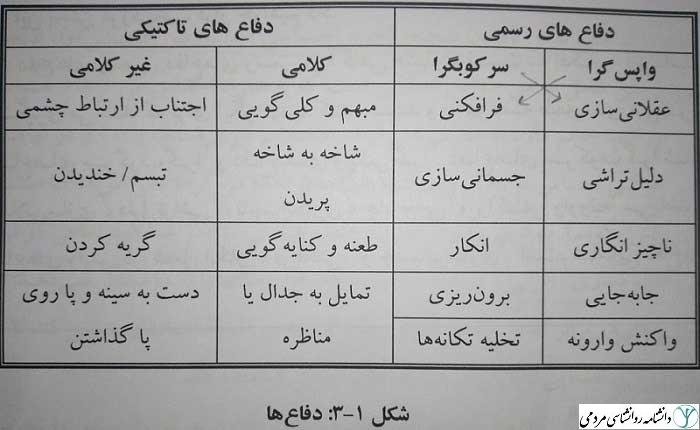 دفاع های رسمی	دفاع های تاکتیکی
واپس گرا	سرکوبگرا	کلامی	غیر کلامی
عقلانی‌سازی	فرافکنی	مبهم و کلی‌گویی	اجتناب از ارتباط چشمی
دلیل‌تراشی	جسمانی‌سازی	شاخه به شاخه پریدن	تبسم/ خندیدن
ناچیز انگاری	انکار	طعنه و کنایه‌گویی	گریه کردن
جابه‌جایی	برون‌ریزی	تمایل به جدال یا	دست به سینه و پا روی
واکنش وارونه	تخلیه تکانه‌ها	مناظره	پا گذاشتن
شکل ۱-۳: دفاع‌ها
دانشنامه روانشناسی مردمی